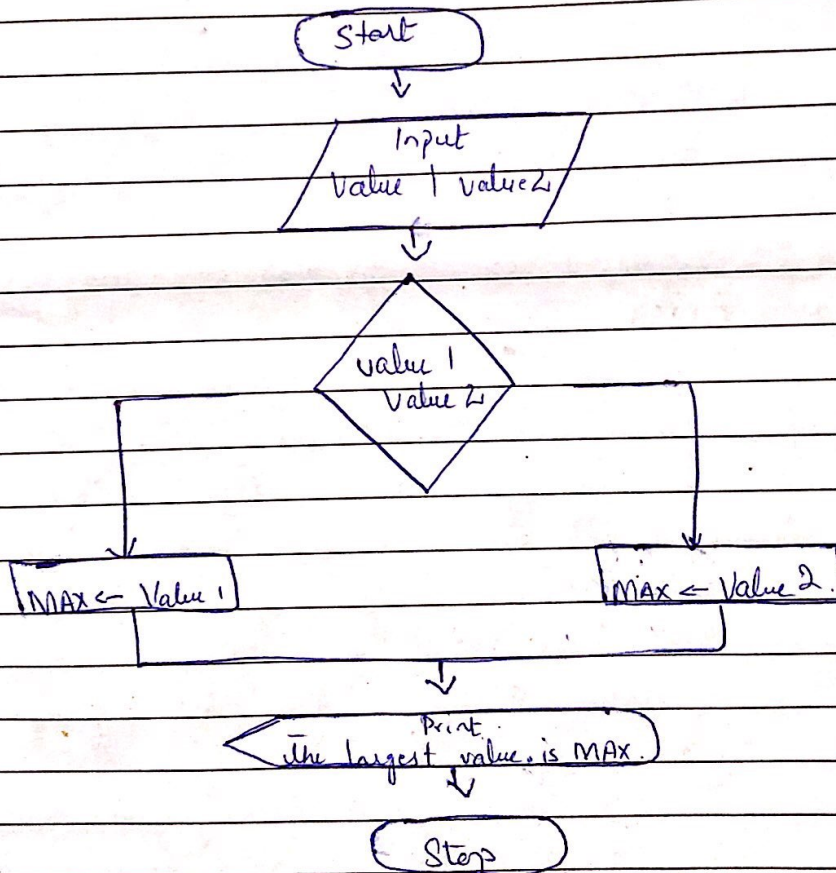 Start
Input
Value 1 value 2
value 1
Value 2
MAX ← Value 1
MAX ← Value 2.
Print.
The largest value. is MAX.
Stop